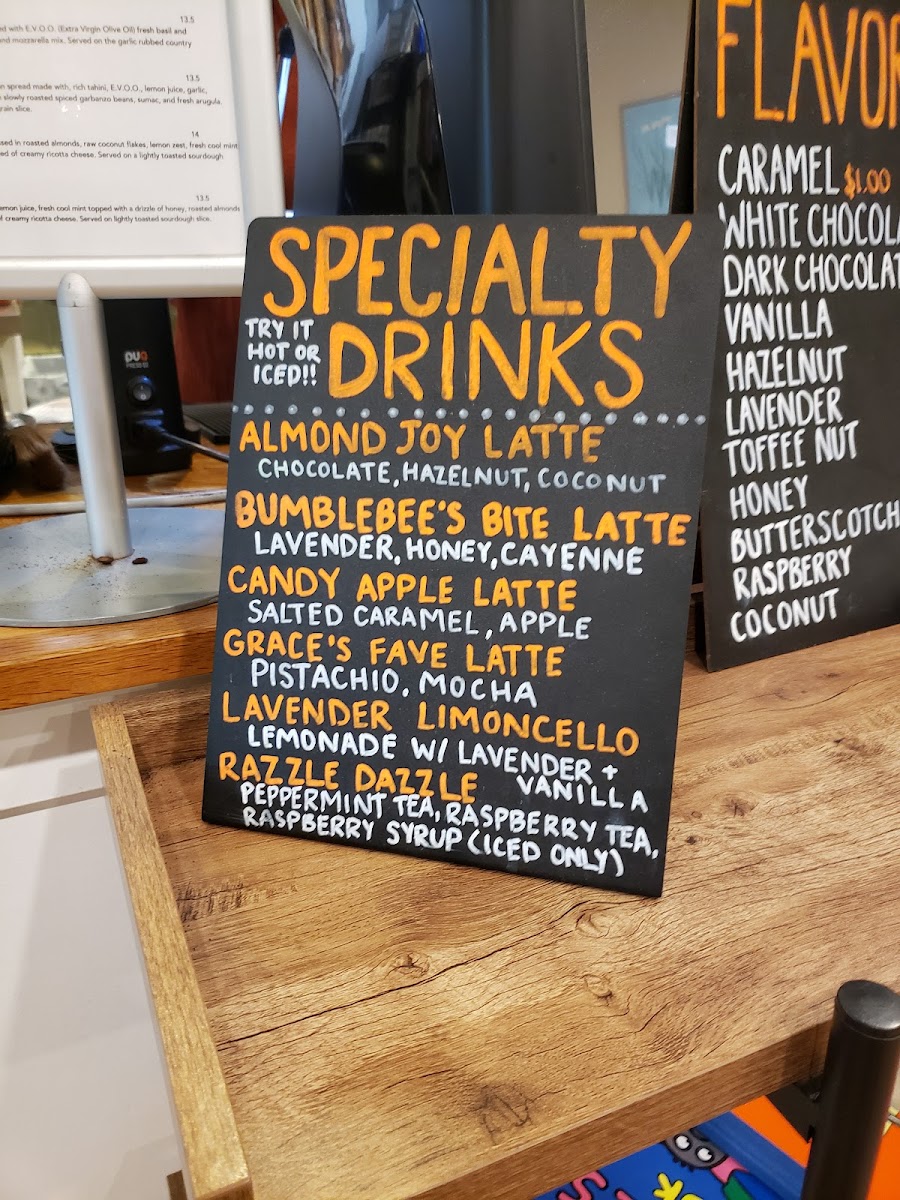 13.5
ed with E.V.O.O. (Extra Virgin Olive Oil) fresh basil and
nd mozzarella mix. Served on the garlic rubbed country
13.5
n spread made with, rich tahini, E.V.O.O., lemon juice, garlic,
slowly roasted spiced garbanzo beans, sumac, and fresh arugula.
rain slice.
14
sed in roasted almonds, raw coconut flakes, lemon zest, fresh cool mint
ed of creamy ricotta cheese. Served on a lightly toasted sourdough
13.5
emon juice, fresh cool mint topped with a drizzle of honey, roasted almonds
f creamy ricotta cheese. Served on lightly toasted sourdough slice.
SPECIALTY
DRINKS
TRY IT
HOT OR
ICED!!
ALMOND JOY LATTE
CHOCOLATE, HAZELNUT, COCONUT
BUMBLEBEE'S BITE LATTE
LAVENDER, HONEY, CAYENNE
CANDY APPLE LATTE
SALTED CARAMEL, APPLE
GRACE'S FAVE LATTE
PISTACHIO, MOCHA
LAVENDER LIMONCELLO
LEMONADE W/ LAVENDER +
VANILLA
RAZZLE DAZZLE
PEPPERMINT TEA, RASPBERRY TEA,
RASPBERRY SYRUP (ICED ONLY)
FLAVOR
CARAMEL $1.00
WHITE CHOCOLA
DARK CHOCOLAT
VANILLA
HAZELNUT
LAVENDER
TOFFEE NUT
HONEY
BUTTERSCOTCH
RASPBERRY
COCONUT